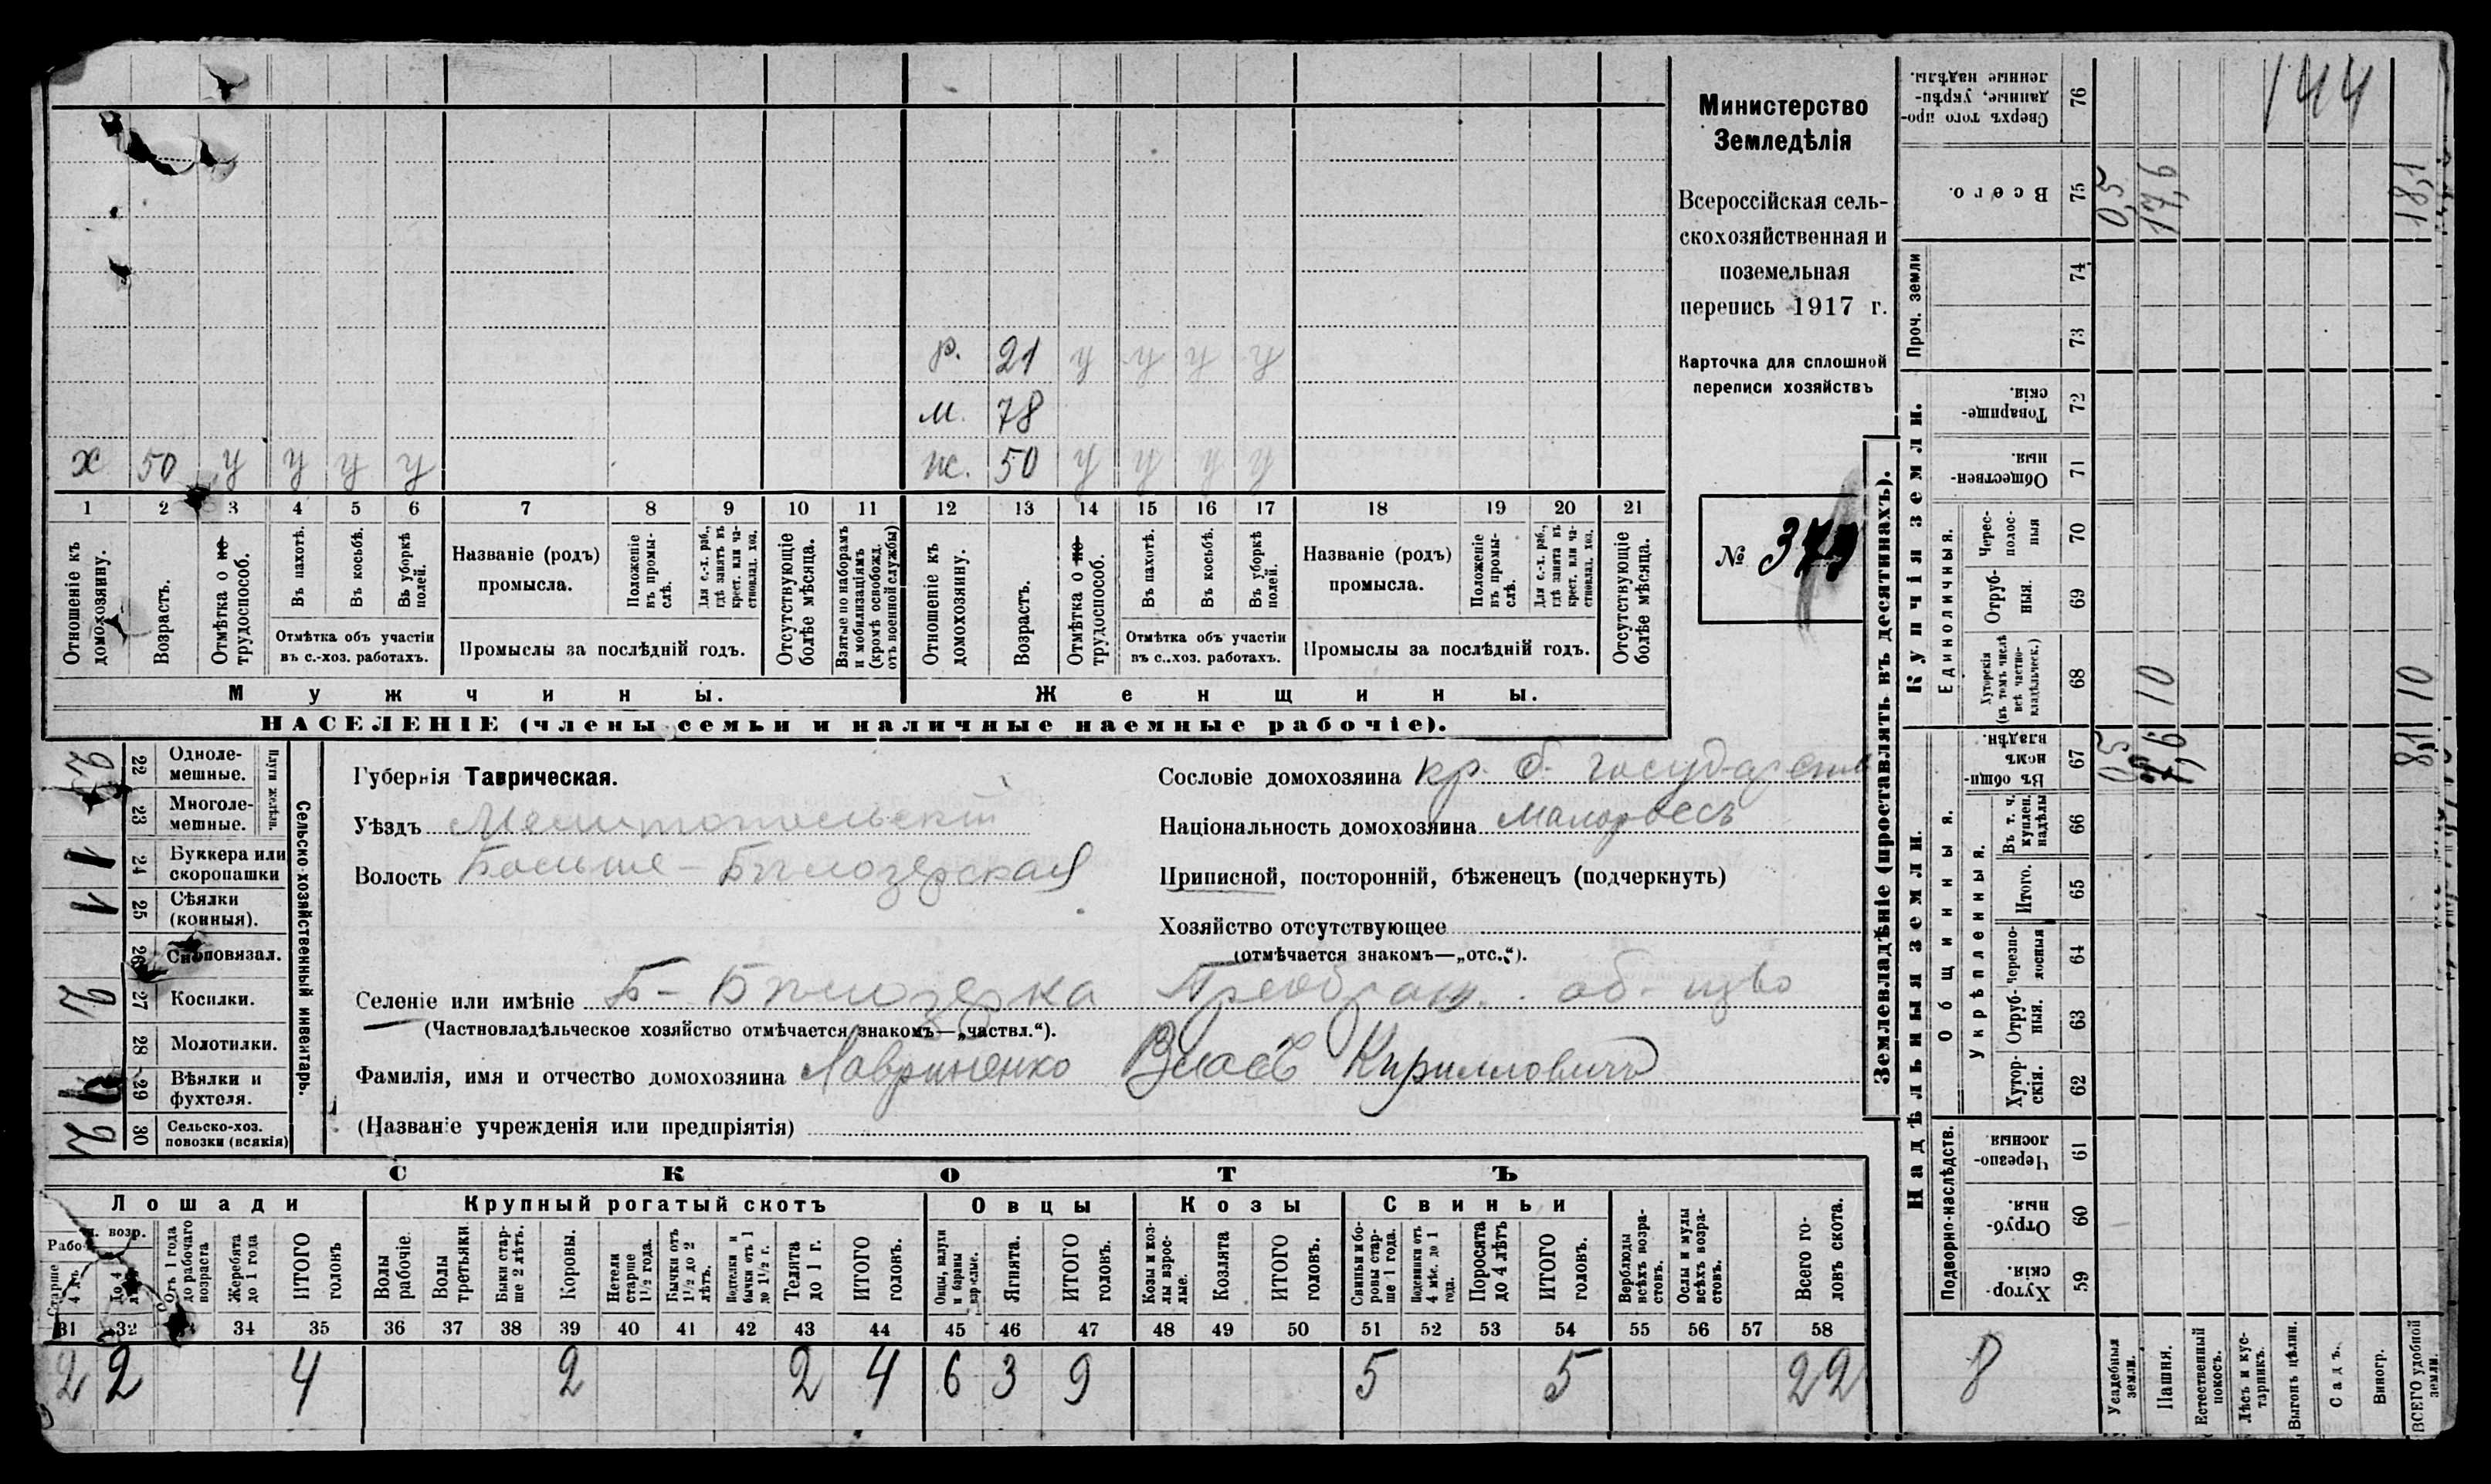 р. 21 у у у у
м. 78
х 50 у у у у ж. 50 у у у у
1 2 3 4 5 6 7 8 9 10 11 12 13 14 15 16 17 18 19 20 21
Отношеніе къ домохозяину.
Возрастъ.
Отмѣтка о не трудоспособ.
Въ пахотѣ.
Въ косьбѣ.
Въ уборкѣ полей.
Отмѣтка объ участіи
въ с.-хоз. работахъ.
Названіе (родъ)
промысла.
Положеніе въ промы-слѣ.
Для с.-х. раб., гдѣ занятъ въ крест. или ча-стновлад. хоз.
Промыслы за послѣдній годъ.
Отсутствующіе болѣе мѣсяца.
Взятые по наборамъ и мобилизаціямъ (кромѣ освобожд. отъ военной службы)
Отношеніе къ домохозяину.
Возрастъ.
Отмѣтка о не трудоспособ.
Въ пахотѣ.
Въ косьбѣ.
Въ уборкѣ полей.
Отмѣтка объ участіи
въ с.-хоз. работахъ.
Названіе (родъ)
промысла.
Положеніе въ промы-слѣ.
Для с.-х. раб., гдѣ занята въ крест. или ча-стновлад. хоз.
Промыслы за послѣдній годъ.
Отсутствующіе болѣе мѣсяца.
Мужчины. Женщины.
НАСЕЛЕНІЕ (члены семьи и наличные наемные рабочіе).
Министерство
Земледѣлія
Всероссійская сель-
скохозяйственная и
поземельная
перепись 1917 г.
Карточка для сплошной
переписи хозяйствъ
№
Сельско-хозяйственный инвентарь.
Плуги желѣзн.
22 Одноле-мешные.
23 Многоле-мешные.
1 24 Буккера или скоропашки
1 25 Сѣялки (конныя).
26 Сноповязал.
2 27 Косилки.
28 Молотилки.
29 Вѣялки и фухтеля.
2 30 Сельско-хоз. повозки (всякія)
Губернія Таврическая.
Уѣздъ Мелитопольскій
Волость Больше-Бѣлозерская
Сословіе домохозяина кр. б. государств
Національность домохозяина малороссъ
Приписной, посторонній, бѣженецъ (подчеркнуть)
Хозяйство отсутствующее
(отмѣчается знакомъ—„отс.“).
Селеніе или имѣніе Б-Бѣлозерка Преображ. об-щво
(Частновладѣльческое хозяйство отмѣчается знакомъ—„частвл.“).
Фамилія, имя и отчество домохозяина Лавриненко Власъ Кирилловичъ
(Названіе учрежденія или предпріятія)
СКОТЪ
Лошади Крупный рогатый скотъ Овцы Козы Свиньи
Старше 4 л.
Отъ 1 года до рабочаго возраста
Жеребята до 1 года
ИТОГО головъ
Волы рабочіе.
Волы третьяки
Быки стар-ше 2 лѣтъ.
Коровы.
Нетели старше 1½ года.
Бычки отъ 1½ до 2 лѣтъ.
Подтелки и бычки отъ 1 до 1½ г.
Телята до 1 г.
ИТОГО головъ.
Овцы, валухи и бараны взрослые.
Ягнята.
ИТОГО головъ.
Козы и коз-лы взрос-лые.
Козлята
ИТОГО головъ.
Свиньи и бо-ровы стар-ше 1 года.
Подсвинки отъ 4 мѣс. до 1 года.
Поросята до 4 лѣтъ
ИТОГО головъ.
Верблюды всѣхъ возра-стовъ.
Ослы и мулы всѣхъ возра-стовъ.
Всего го-ловъ скота.
31 32 34 35 36 37 38 39 40 41 42 43 44 45 46 47 48 49 50 51 52 53 54 55 56 57 58
2 2 4 2 2 4 6 3 9 5 5 22
Землевладѣніе (проставлять въ десятинахъ).
Купчія земли.
Надѣльныя земли.
76 Сверхъ того про-данные, укрѣп-ленные надѣлы. 144
75 Всего. 0,5 17,6 18,1
Проч. земли
74
73
72 Товарище-скія.
71 Обществен-ныя.
Единоличныя.
70 Черес-полос-ныя
69 Отруб-ныя.
68 Хуторскія (въ томъ числѣ всѣ частно-владѣльческ.) 10 10
Общинныя.
67 Въ общин-номъ владѣн. 0,5 7,6 8,1
Укрѣпленныя.
66 Въ т. ч. куплен. надѣлы
65 Итого.
64 Черезпо-лосныя
63 Отруб-ныя.
62 Хутор-скія.
Подворно-наслѣдств.
61 Черезпо-лосныя
60 Отруб-ныя.
59 Хутор-скія.
8
Усадебныя земли.
Пашня.
Естественный покосъ.
Лѣсъ и кус-тарникъ.
Выгонъ цѣлин.
Садъ.
Виногр.
ВСЕГО удобной земли.